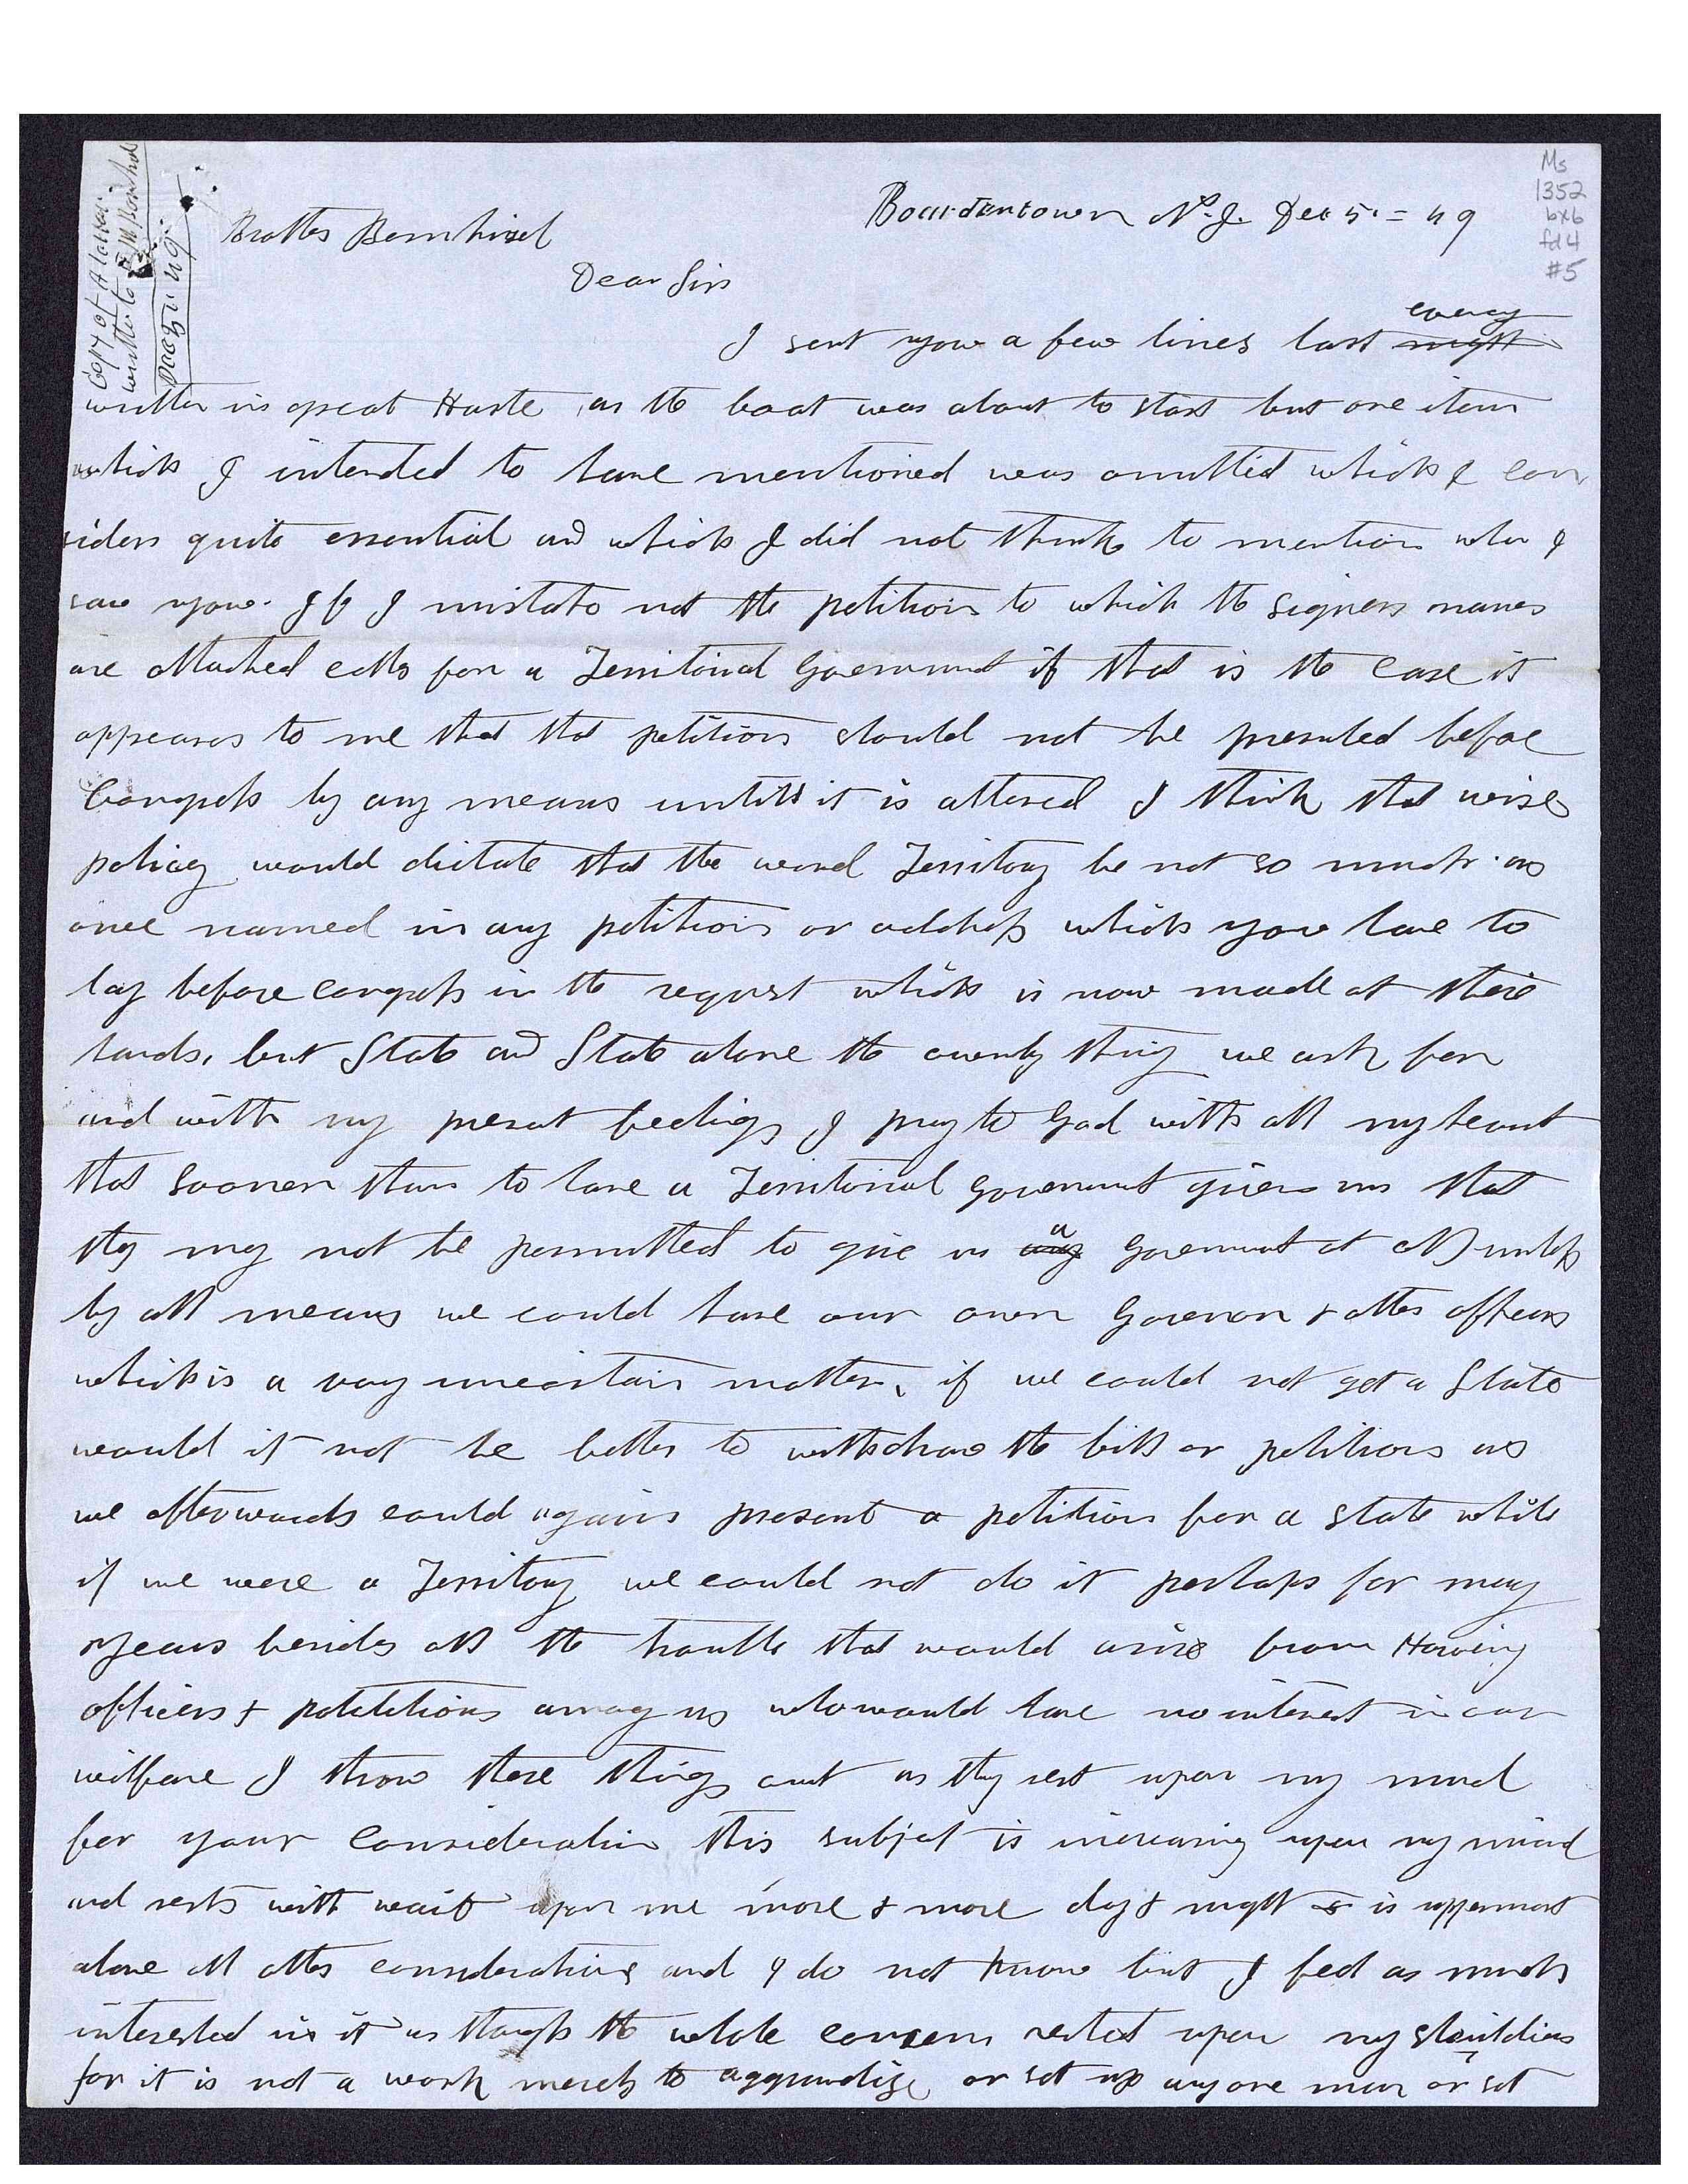 Copy of A letter
written to J M Bernhisel
Dec 5 49
Ms
1352
bx6
fd 4
#5
Boardentown N.J. Dec 5th = 49
Brother Bernhisel
Dear Sir
I sent you a few lines last night eveng
written in great Haste as the boat was about to start but one item
which I intended to have mentioned was omitted which I con
siders quite essential and which I did not think to mention when I
saw you. If I mistake not the petition to which the signers names
are attached calls for a Territorial Government if that is the case it
appears to me that that petition should not be presented before
Congress by any means untill it is altered I think that wise
policy would dictate that the word Territory be not so much as
once named in any petition or address which you have to
lay before congress in the request which is now made at their
hands, but State and State alone the ownly thing we ask for
and with my present feelings I pray to God with all my heart
that sooner than to have a Territorial government given us that
they may not be permitted to give us any a Government at all unless
by all means we could have our own Govenor & other officers
which is a very uncertain matter. if we could not get a State
would it not be better to withdraw the bill or petition as
we afterwards could again present a petition for a state while
if we were a Territory we could not do it perhaps for many
years besides all the trouble that would arise from Having
officers & polititions among us who would have no interest in our
wellfare I throw these things out as they rest upon my mind
for your Consideration this subject is increasing upon my mind
and rests with wait upon me more & more day & night & is uppermost
above all other considerations and I do not know but I feel as much
interested in it as though the whole concern rested upon my shoulders
for it is not a work merely to aggrandize or set up any one man or set